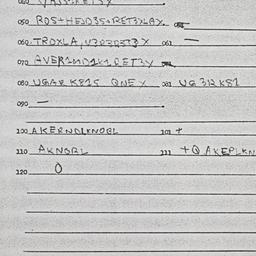 050 ROS+HEJD35+RET3XLAX
060 TROXLA, 061 —
070 AVER1MD1X1RET3X
080 UGAR K815 QNEX 081 UG312K81
090 —
100 AKERNDLKNOBL 101 +
110 AKNOBL 111 +Q AKEPLKN
120 0